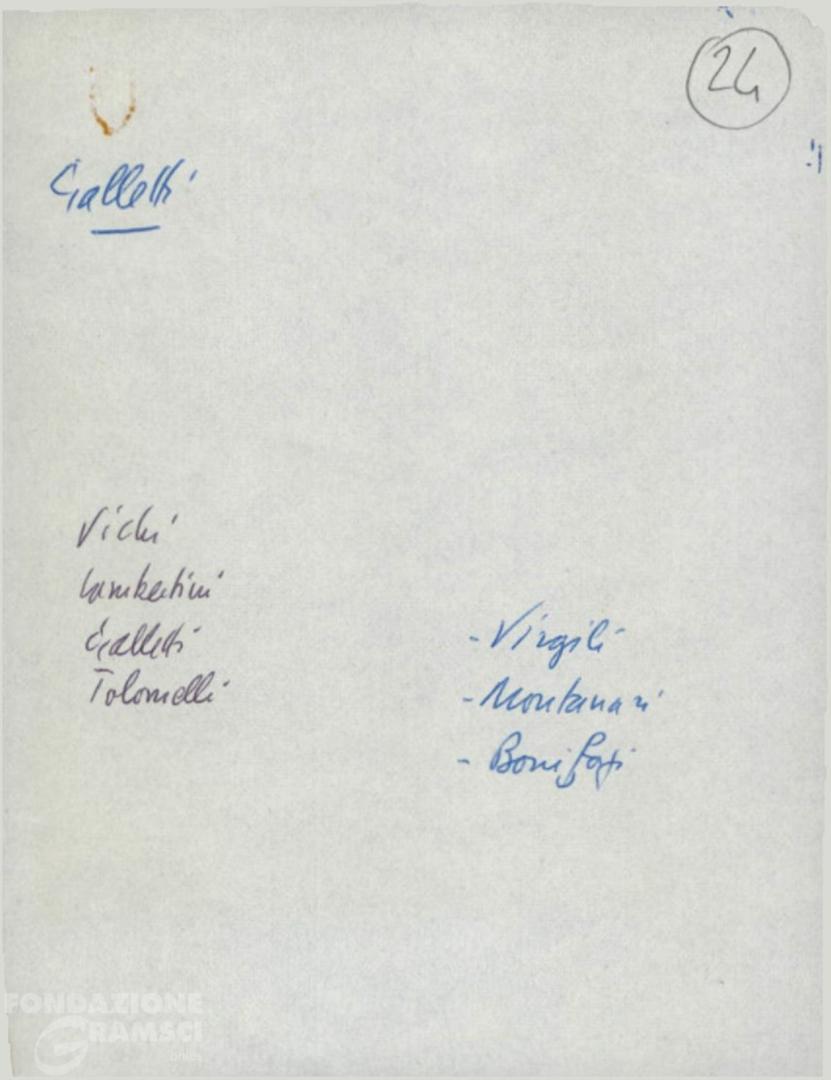 24
Galletti
Vichi
Lambertini
Galletti
Tolomelli
- Virgili
- Montanari
- Bonifazi
FONDAZIONE
GRAMSCI
onlus